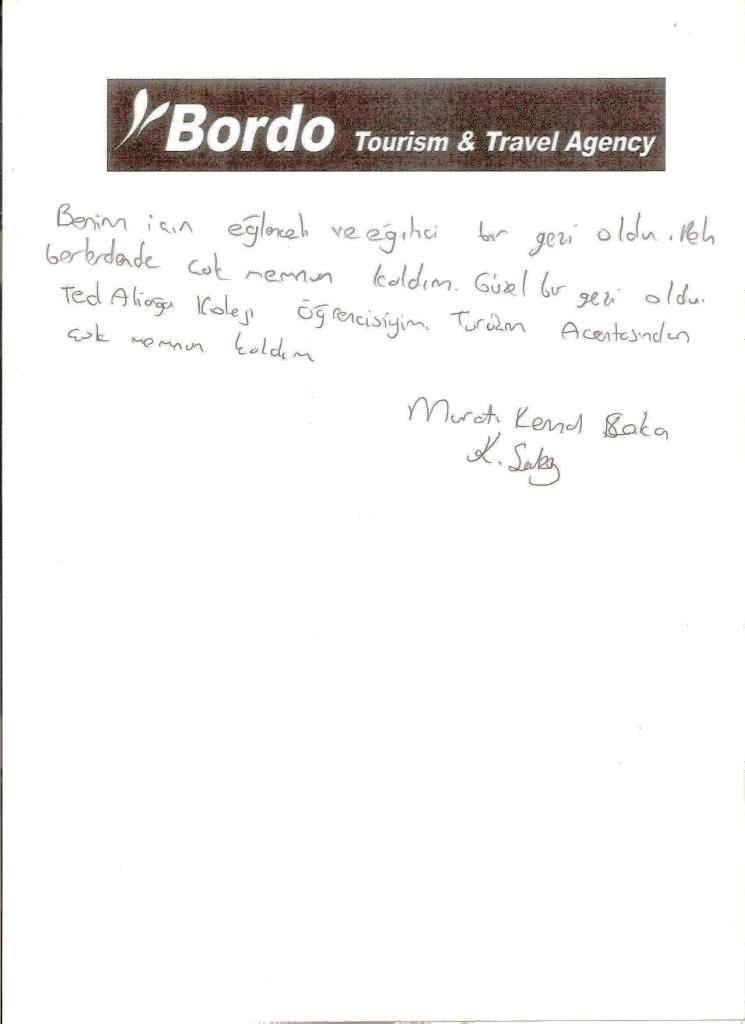 Bordo Tourism & Travel Agency
Benim için eğlenceli ve eğitici bir gezi oldu. Reh
berlerdende çok memnun kaldım. Güzel bir gezi oldu.
Ted Aliağa Koleji Öğrencisiyim. Turizm Acentasından
çok memnun kaldım
Murat Kemal Saka
K. Saka